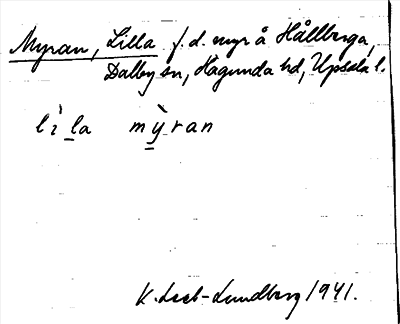 Myran, Lilla f.d. myr å Hållberga,
Dalby sn, Hagunda hd, Upsala l.
lìla mỳran
K. Lech-Lundberg 1941.